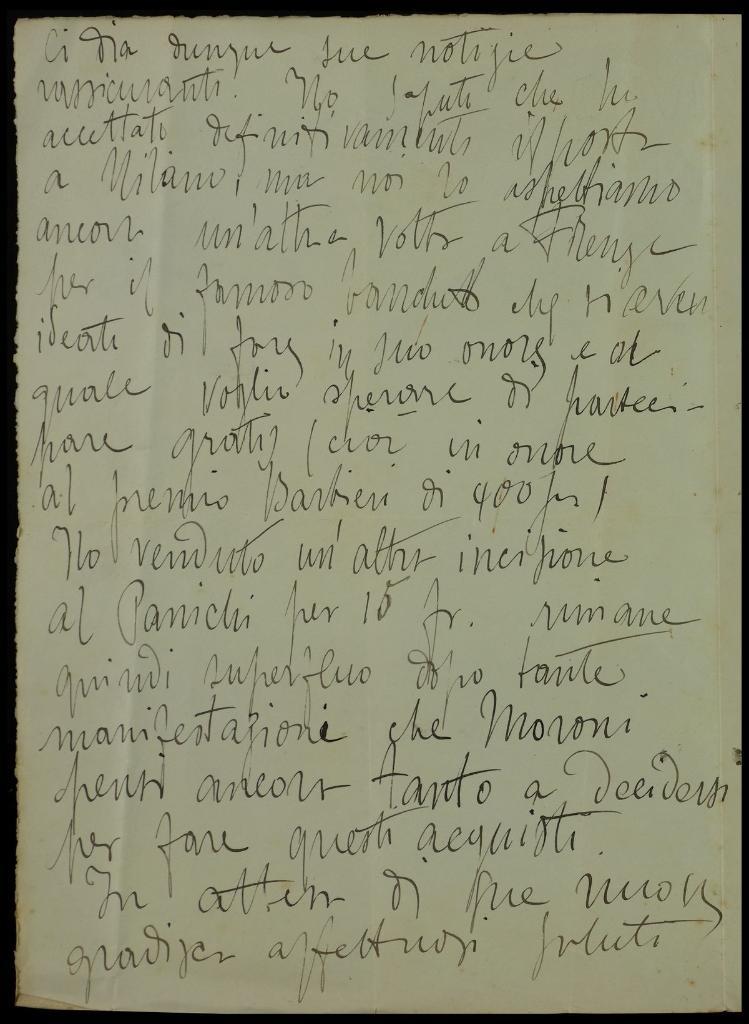 Ci dia dunque sue notizie
rassicuranti. Ho saputo che ha
accettato definitivamente il posto
a Milano, ma noi lo aspettiamo
ancora un'altra volta a Firenze
per il famoso banchetto che si aveva
ideato di fare in suo onore e al
quale voglio sperare di parteci-
pare gratis (cioè in onore
al premio Barbieri di 400 fr)
Ho venduto un'altra incisione
al Panichi per 15 fr. rimane
quindi superfluo dopo tante
manifestazioni che Moroni
pensi ancora tanto a decidersi
per fare questi acquisti.
In attesa di sue nuove
gradisca affettuosi saluti